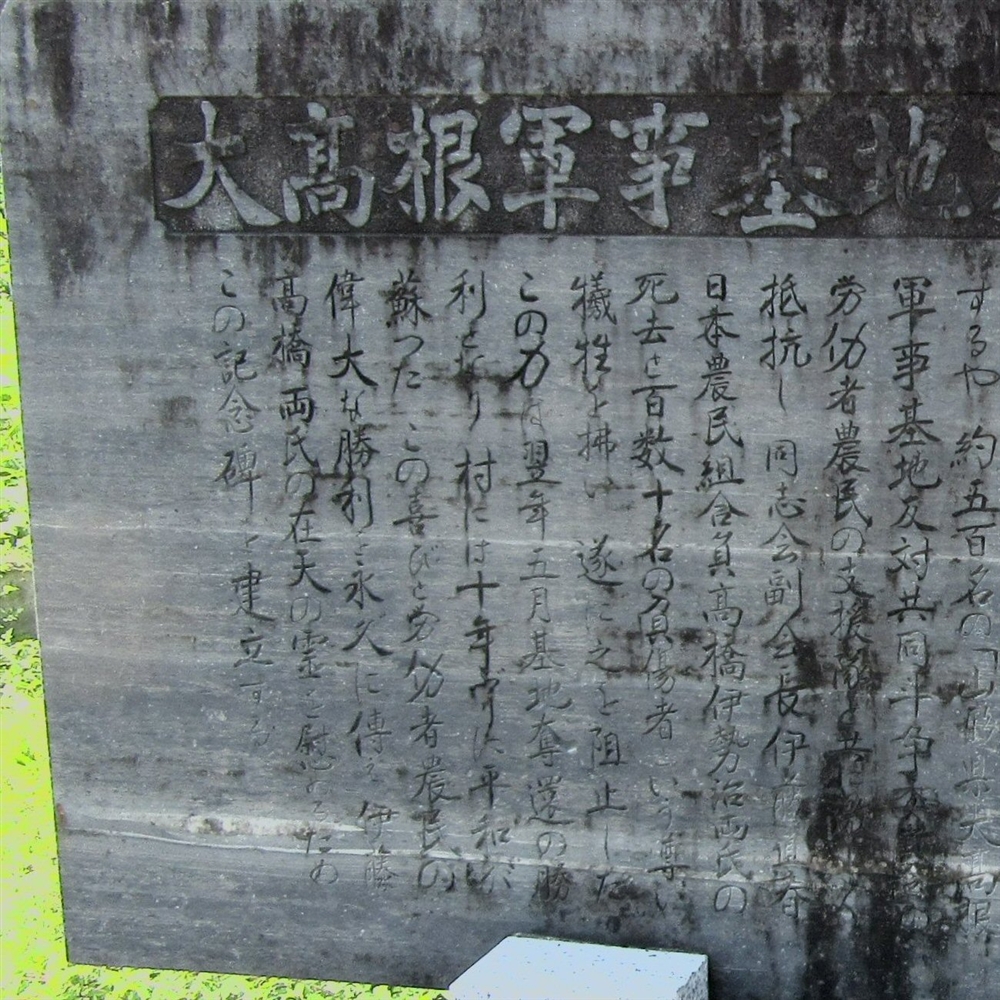 大高根軍事基地
するや 約五百名の「山形県大高根
軍事基地反対共同斗争
労仂者農民の支援
抵抗し 同志会副会長伊藤
日本農民組合員高橋伊勢治両氏の
死去と百数十名の負傷者という尊い
犠牲を拂い 遂に之を阻止した
この力は翌年五月基地奪還の勝
利となり 村には十年ぶりに平和が
蘇った この喜びと労仂者農民の
偉大な勝利を永久に傳え 伊藤
高橋両氏の在天の霊を慰めるため
この記念碑を建立する